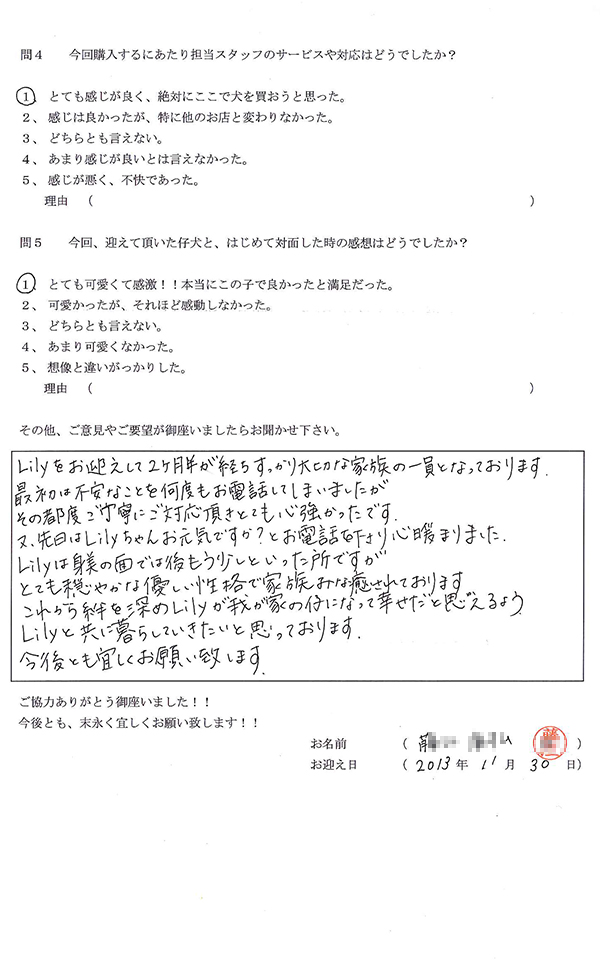 問４　今回購入するにあたり担当スタッフのサービスや対応はどうでしたか？
１、とても感じが良く、絶対にここで犬を買おうと思った。
２、感じは良かったが、特に他のお店と変わりなかった。
３、どちらとも言えない。
４、あまり感じが良いとは言えなかった。
５、感じが悪く、不快であった。
理由　（　　　　　　　　　　）
問５　今回、迎えて頂いた仔犬と、はじめて対面した時の感想はどうでしたか？
１、とても可愛くて感激！！本当にこの子で良かったと満足だった。
２、可愛かったが、それほど感動しなかった。
３、どちらとも言えない。
４、あまり可愛くなかった。
５、想像と違いがっかりした。
理由　（　　　　　　　　　　）
その他、ご意見やご要望が御座いましたらお聞かせ下さい。
Lilyをお迎えして2ヶ月半が経ちすっかり大切な家族の一員となっております.
最初は不安なことを何度もお電話してしまいましたが
その都度ご丁寧にご対応頂きとても心強かったです.
又、先日はLilyちゃんお元気ですか?とお電話を下さり心暖まりました.
Lilyは身美の面では後もう少しといった所ですが
とても穏やかな優しい性格で家族みな癒されております
これから絆を深めLilyが我が家の仔になって幸せだと思えるよう
Lilyと共に暮らしていきたいと思っております.
今後とも宜しくお願い致します.
ご協力ありがとう御座いました！！
今後とも、末永く宜しくお願い致します！！
お名前　（　　　　）
お迎え日　（2013年 11月 30日）